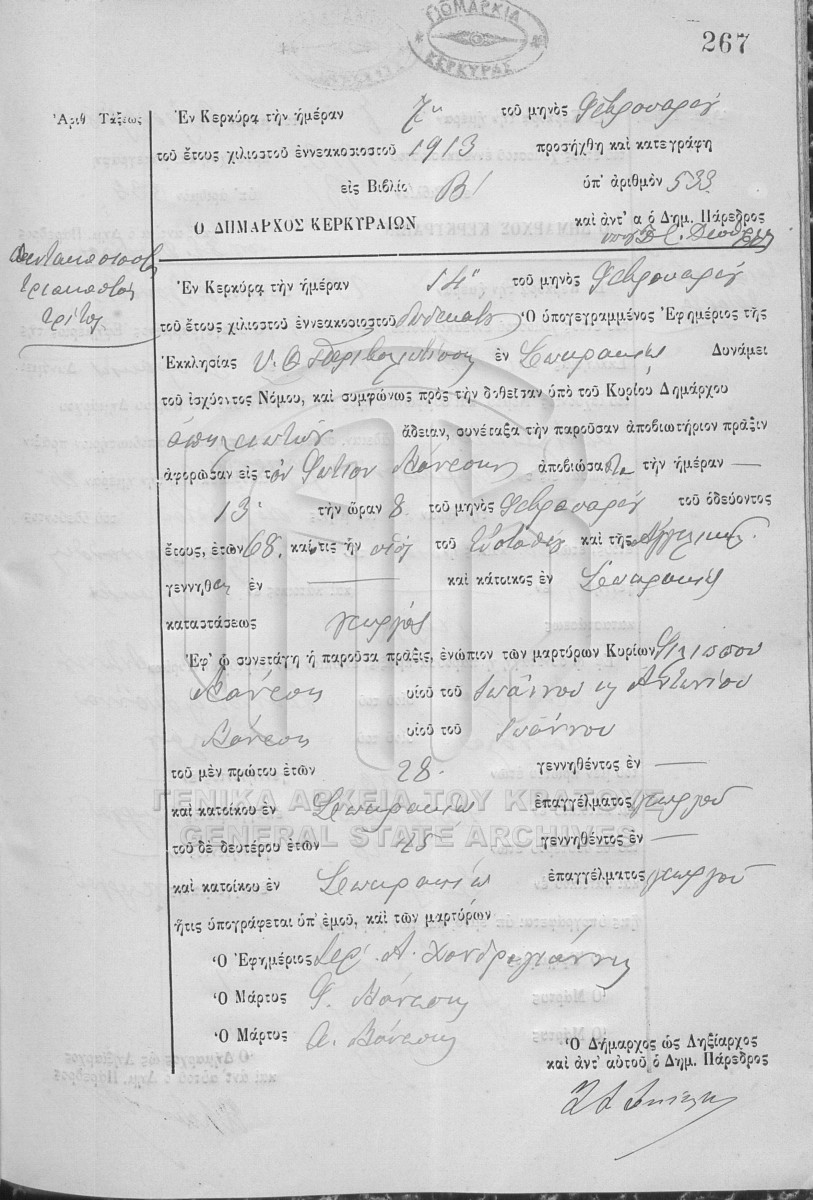 ΔΗΜΑΡΧΙΑ
ΚΕΡΚΥΡΑΣ
267
Ἀριθ Τάξεως
Ἐν Κερκύρᾳ τὴν ἡμέραν 7ην τοῦ μηνὸς Φεβρουαρίου
τοῦ ἔτους χιλιοστοῦ ἐννεακοσιοστοῦ 1913 προσήχθη καὶ κατεγράφη
εἰς Βιβλίο Β' ὑπ' ἀριθμὸν 533
Ο ΔΗΜΑΡΧΟΣ ΚΕΡΚΥΡΑΙΩΝ
καὶ ἀντ' α ὁ Δημ. Πάρεδρος
πεντακοσιοστὸς
τριακοστὸς
τρίτος
Ἐν Κερκύρᾳ τὴν ἡμέραν 14 τοῦ μηνὸς Φεβρουαρίου
τοῦ ἔτους χιλιοστοῦ ἐννεακοσιοστοῦ δωδεκάτου Ὁ ὑπογεγραμμένος Ἐφημέριος τῆς
Ἐκκλησίας Υ. Θ. ἐν Σπαρτερῷ Δυνάμει
τοῦ ἰσχύοντος Νόμου, καὶ συμφώνως πρὸς τὴν δοθεῖσαν ὑπὸ τοῦ Κυρίου Δημάρχου
ἄδειαν, συνέταξα τὴν παροῦσαν ἀποβιωτήριον πρᾶξιν
ἀφορῶσαν εἰς τὸν Φώτιον ἀποβιώσαντα τὴν ἡμέραν —
13 τὴν ὥραν 8 τοῦ μηνὸς Φεβρουαρίου τοῦ ὁδεύοντος
ἔτους, ἐτῶν 68, καὶ τις ἦν υἱὸς τοῦ Εὐσταθίου καὶ τῆς Ἀγγελικῆς
γεννηθεὶς ἐν — καὶ κάτοικος ἐν
καταστάσεως γεωργὸς
Ἐφ' ᾧ συνετάγη ἡ παροῦσα πρᾶξις, ἐνώπιον τῶν μαρτύρων Κυρίων Φιλίππου
υἱοῦ τοῦ Ἰωάννου κ Ἀντωνίου
υἱοῦ τοῦ Ἰωάννου
τοῦ μὲν πρώτου ἐτῶν 28 γεννηθέντος ἐν —
ΓΕΝΙΚΑ ΑΡΧΕΙΑ ΤΟΥ ΚΡΑΤΟΥΣ
καὶ κατοίκου ἐν ἐπαγγέλματος γεωργοῦ
GENERAL STATE ARCHIVES
τοῦ δὲ δευτέρου ἐτῶν 45 γεννηθέντος ἐν —
καὶ κατοίκου ἐν ἐπαγγέλματος γεωργοῦ
ἥτις ὑπογράφεται ὑπ' ἐμοῦ, καὶ τῶν μαρτύρων
Ὁ Ἐφημέριος Ἱερ. Α. Χονδρογιάννης
Ὁ Μάρτυς Φ.
Ὁ Μάρτυς Α.
Ὁ Δήμαρχος ὡς Ληξίαρχος
καὶ ἀντ' αὐτοῦ ὁ Δημ. Πάρεδρος